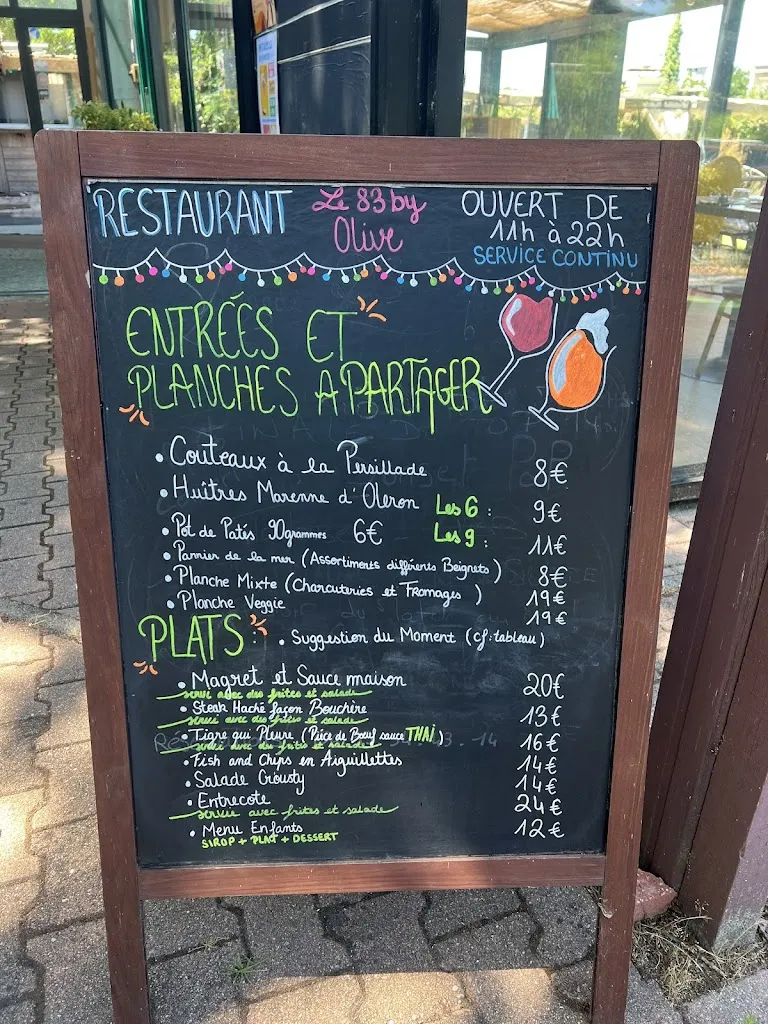 RESTAURANT Le 83 by Olive OUVERT DE 11h à 22h
SERVICE CONTINU
ENTRÉES ET
PLANCHES A PARTAGER
• Couteaux à la Persillade 8€
• Huîtres Marenne d'Oleron Les 6 : 9€
Les 9 : 11€
• Pot de Patés 90grammes 6€
• Pannier de la mer (Assortiments différents Beignets) 8€
• Planche Mixte (Charcuteries et Fromages) 19€
• Planche Veggie 19€
PLATS : • Suggestion du Moment (cf: tableau)
• Magret et Sauce maison 20€
servi avec des frites et salade
• Steak Haché façon Bouchère 13€
servi avec des frites et salade
• Tigre qui Pleure (Pièce de Boeuf sauce THAÏ) 16€
servi avec des frites et salade
• Fish and Chips en Aiguillettes 14€
• Salade Crousty 14€
• Entrecote 24€
servie avec frites et salade
• Menu Enfants 12€
SIROP + PLAT + DESSERT